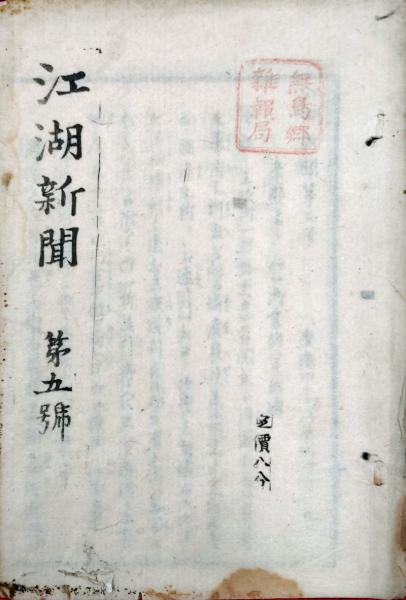 無鳥郷
雜報局
定價八分
江湖新聞 第五號